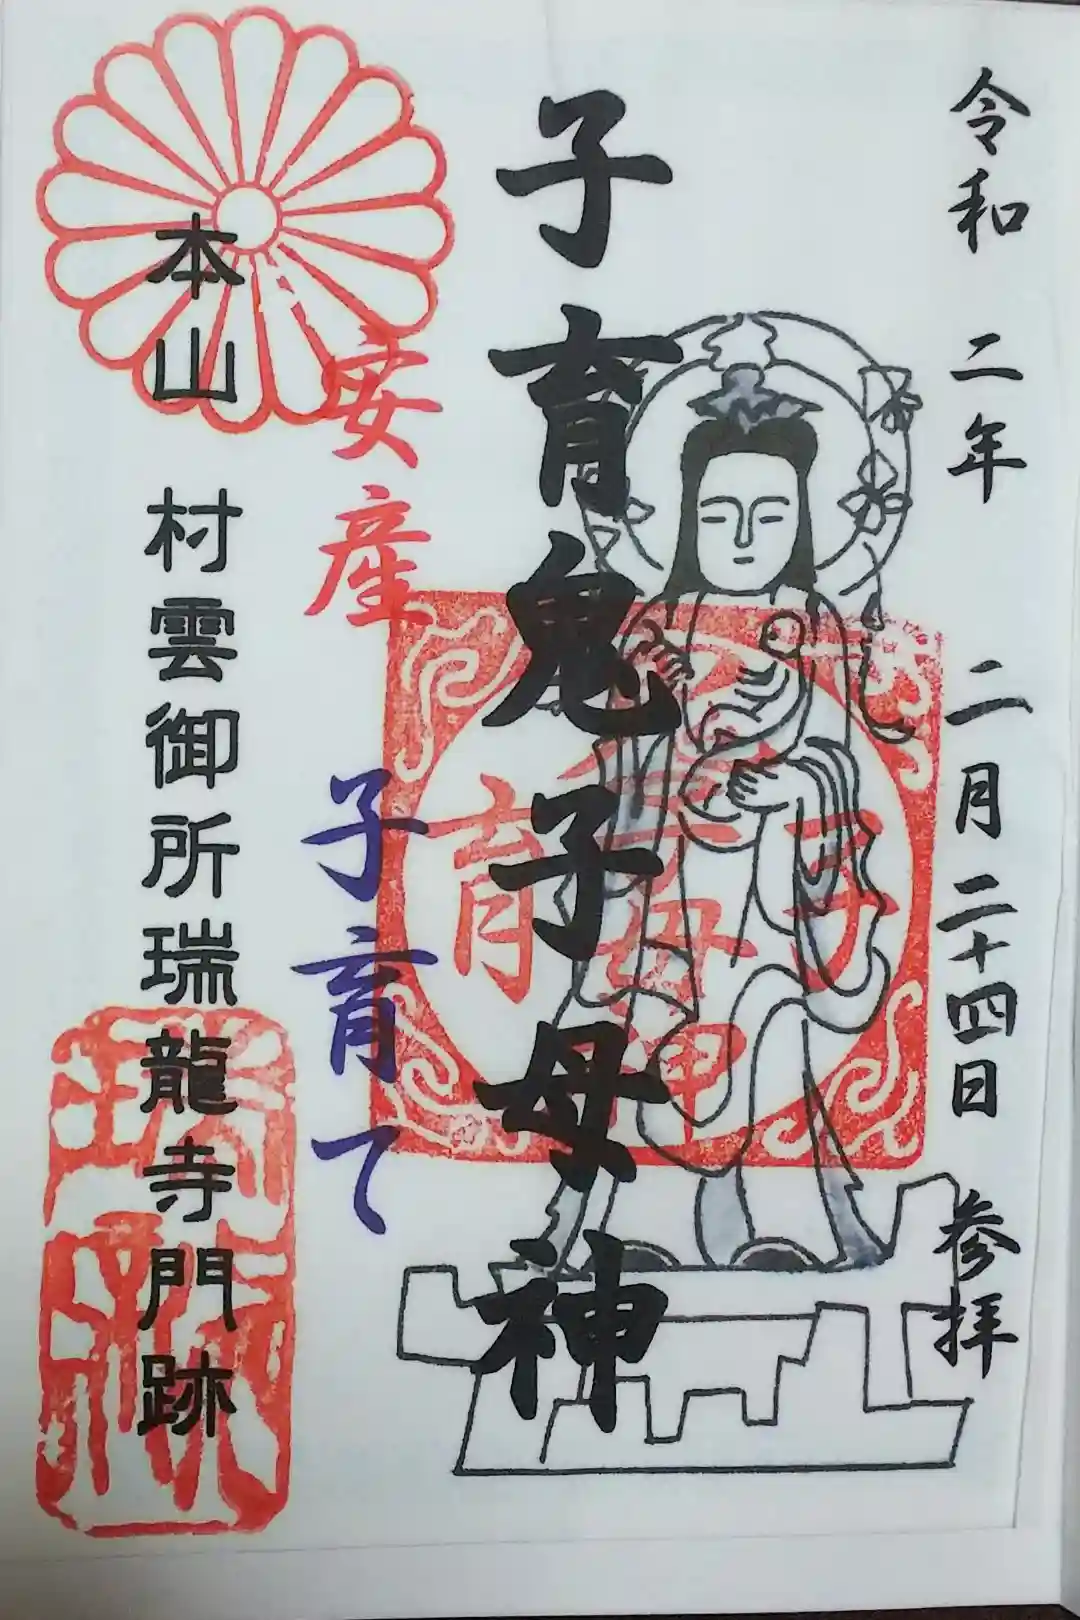 令和二年二月二十四日参拝
子育鬼子母神
安産
子育て
本山村雲御所瑞龍寺門跡
子
育
母
神